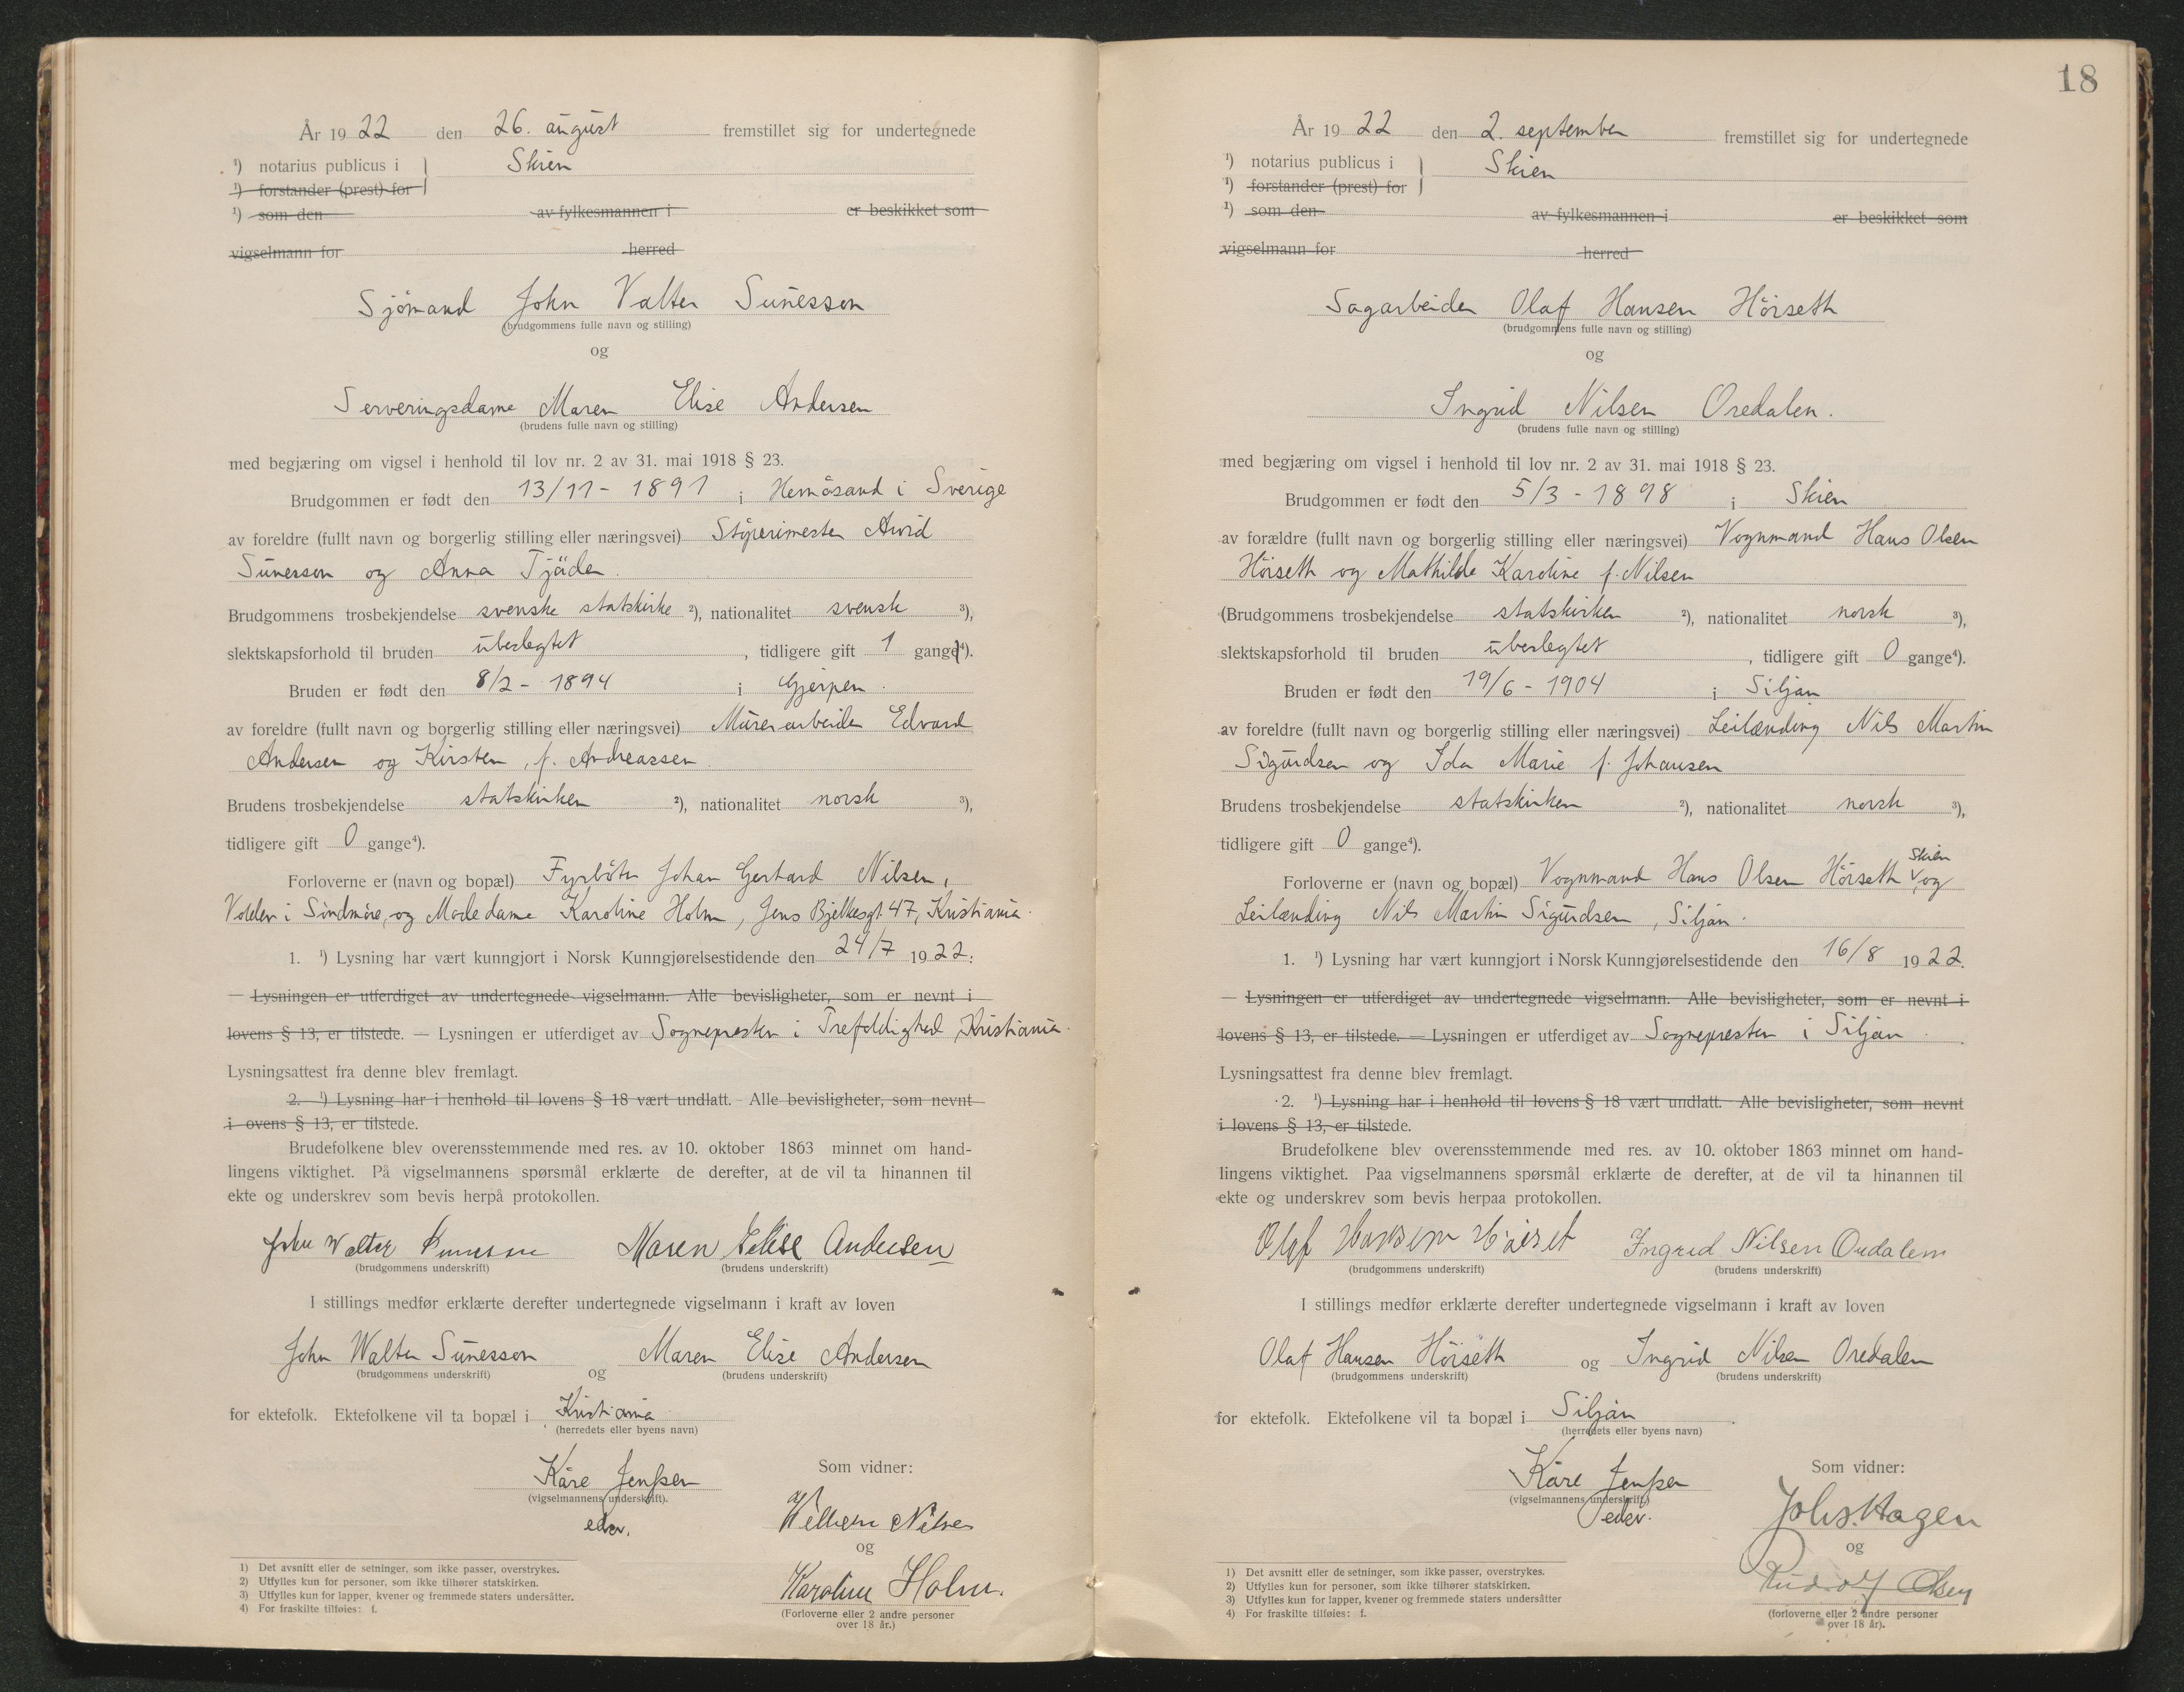 År 1922 den 26. august fremstillet sig for undertegnede
¹) notarius publicus i } Skien
¹) forstander (prest) for
¹) som den av fylkesmannen i er beskikket som
vigselmann for herred
Sjømand John Valter Sunesson
(brudgommens fulle navn og stilling)
og
Serveringsdame Maren Elise Andersen
(brudens fulle navn og stilling)
med begjæring om vigsel i henhold til lov nr. 2 av 31. mai 1918 § 23.
Brudgommen er født den 13/11 - 1891 i Hernösand i Sverige
av foreldre (fullt navn og borgerlig stilling eller næringsvei) Støperimester Arvid
Sunesson og Anna Tjäder.
Brudgommens trosbekjendelse svenske statskirke ²), nationalitet svensk ³),
slektskapsforhold til bruden ubeslegtet, tidligere gift 1 gang⁴).
Bruden er født den 8/2 - 1894 i Gjerpen.
av foreldre (fullt navn og borgerlig stilling eller næringsvei) Murerarbeider Edvard
Andersen og Kirsten, f. Andreassen.
Brudens trosbekjendelse statskirken ²), nationalitet norsk ³),
tidligere gift 0 gange⁴).
Forloverne er (navn og bopæl) Fyrbøter Johan Gerhard Nilsen,
Volden i Sindmøre, og Madedame Karoline Holm, Jens Bjelkesgt. 47, Kristiania.
1. ¹) Lysning har vært kunngjort i Norsk Kunngjørelsestidende den 24/7 1922.
— Lysningen er utferdiget av undertegnede vigselmann. Alle bevisligheter, som er nevnt i
lovens § 13, er tilstede. — Lysningen er utferdiget av Sognepresten i Trefoldighed, Kristiania.
Lysningsattest fra denne blev fremlagt.
2. ¹) Lysning har i henhold til lovens § 18 vært undlatt. Alle bevisligheter, som nevnt
i ovens § 13, er tilstede.
Brudefolkene blev overensstemmende med res. av 10. oktober 1863 minnet om hand-
lingens viktighet. På vigselmannens spørsmål erklærte de derefter, at de vil ta hinannen til
ekte og underskrev som bevis herpå protokollen.
John Walter Sunesson Maren Elise Andersen
(brudgommens underskrift) (brudens underskrift)
I stillings medfør erklærte derefter undertegnede vigselmann i kraft av loven
John Walter Sunesson og Maren Elise Andersen
(brudgommens underskrift) (brudens underskrift)
for ektefolk. Ektefolkene vil ta bopæl i Kristiania
(herredets eller byens navn)
Kåre Jenssen Som vidner:
(vigselmannens underskrift).
edsv. Wilhelm Nilsen
og
Karoline Holm.
(Forloverne eller 2 andre personer
over 18 år.)
1) Det avsnitt eller de setninger, som ikke passer, overstrykes.
2) Utfylles kun for personer, som ikke tilhører statskirken.
3) Utfylles kun for lapper, kvener og fremmede staters undersåtter.
4) For fraskilte tilføies: f.
18
År 1922 den 2. september fremstillet sig for undertegnede
¹) notarius publicus i } Skien
¹) forstander (prest) for
¹) som den av fylkesmannen i er beskikket som
vigselmann for herred
Sagarbeider Olaf Hansen Hörseth
(brudgommens fulle navn og stilling)
og
Ingrid Nilsen Oredalen.
(brudens fulle navn og stilling)
med begjæring om vigsel i henhold til lov nr. 2 av 31. mai 1918 § 23.
Brudgommen er født den 5/3 - 1898 i Skien
av forældre (fullt navn og borgerlig stilling eller næringsvei) Vognmand Hans Olsen
Hörseth og Mathilde Karoline f. Nilsen
(Brudgommens trosbekjendelse statskirken ²), nationalitet norsk ³),
slektskapsforhold til bruden ubeslegtet, tidligere gift 0 gange⁴).
Bruden er født den 19/6 - 1904 i Siljan
av foreldre (fullt navn og borgerlig stilling eller næringsvei) Leilænding Nils Martin
Sigurdsen og Ida Marie f. Johansen
Brudens trosbekjendelse statskirken ²), nationalitet norsk ³),
tidligere gift 0 gange⁴).
Forloverne er (navn og bopæl) Vognmand Hans Olsen Hörseth, Skien og
Leilænding Nils Martin Sigurdsen, Siljan.
1. ¹) Lysning har vært kunngjort i Norsk Kunngjørelsestidende den 16/8 1922.
— Lysningen er utferdiget av undertegnede vigselmann. Alle bevisligheter, som er nevnt i
lovens § 13, er tilstede. — Lysningen er utferdiget av Sognepresten i Siljan.
Lysningsattest fra denne blev fremlagt.
2. ¹) Lysning har i henhold til lovens § 18 vært undlatt. Alle bevisligheter, som nevnt
i lovens § 13, er tilstede.
Brudefolkene blev overensstemmende med res. av 10. oktober 1863 minnet om hand-
lingens viktighet. Paa vigselmannens spørsmål erklærte de derefter, at de vil ta hinannen til
ekte og underskrev som bevis herpaa protokollen.
Olaf Hansen Ingrid Nilsen Oredalen
(brudgommens underskrift) (brudens underskrift)
I stillings medfør erklærte derefter undertegnede vigselmann i kraft av loven
Olaf Hansen Hörseth og Ingrid Nilsen Oredalen
(brudgommens underskrift) (brudens underskrift)
for ektefolk. Ektefolkene vil ta bopæl i Siljan.
(herredets eller byens navn)
Kåre Jenssen Som vidner:
(vigselmannens underskrift)
edsv. Johs. Hagen
og
Rudolf Olsen
(forloverne eller 2 andre personer
over 18 år).
1) Det avsnitt eller de setninger, som ikke passer, overstrykes.
2) Utfylles kun for personer, som ikke tilhører statskirken.
3) Utfylles kun for lapper, kvener og fremmede staters undersåtter
4) For fraskilte tilføies: f.